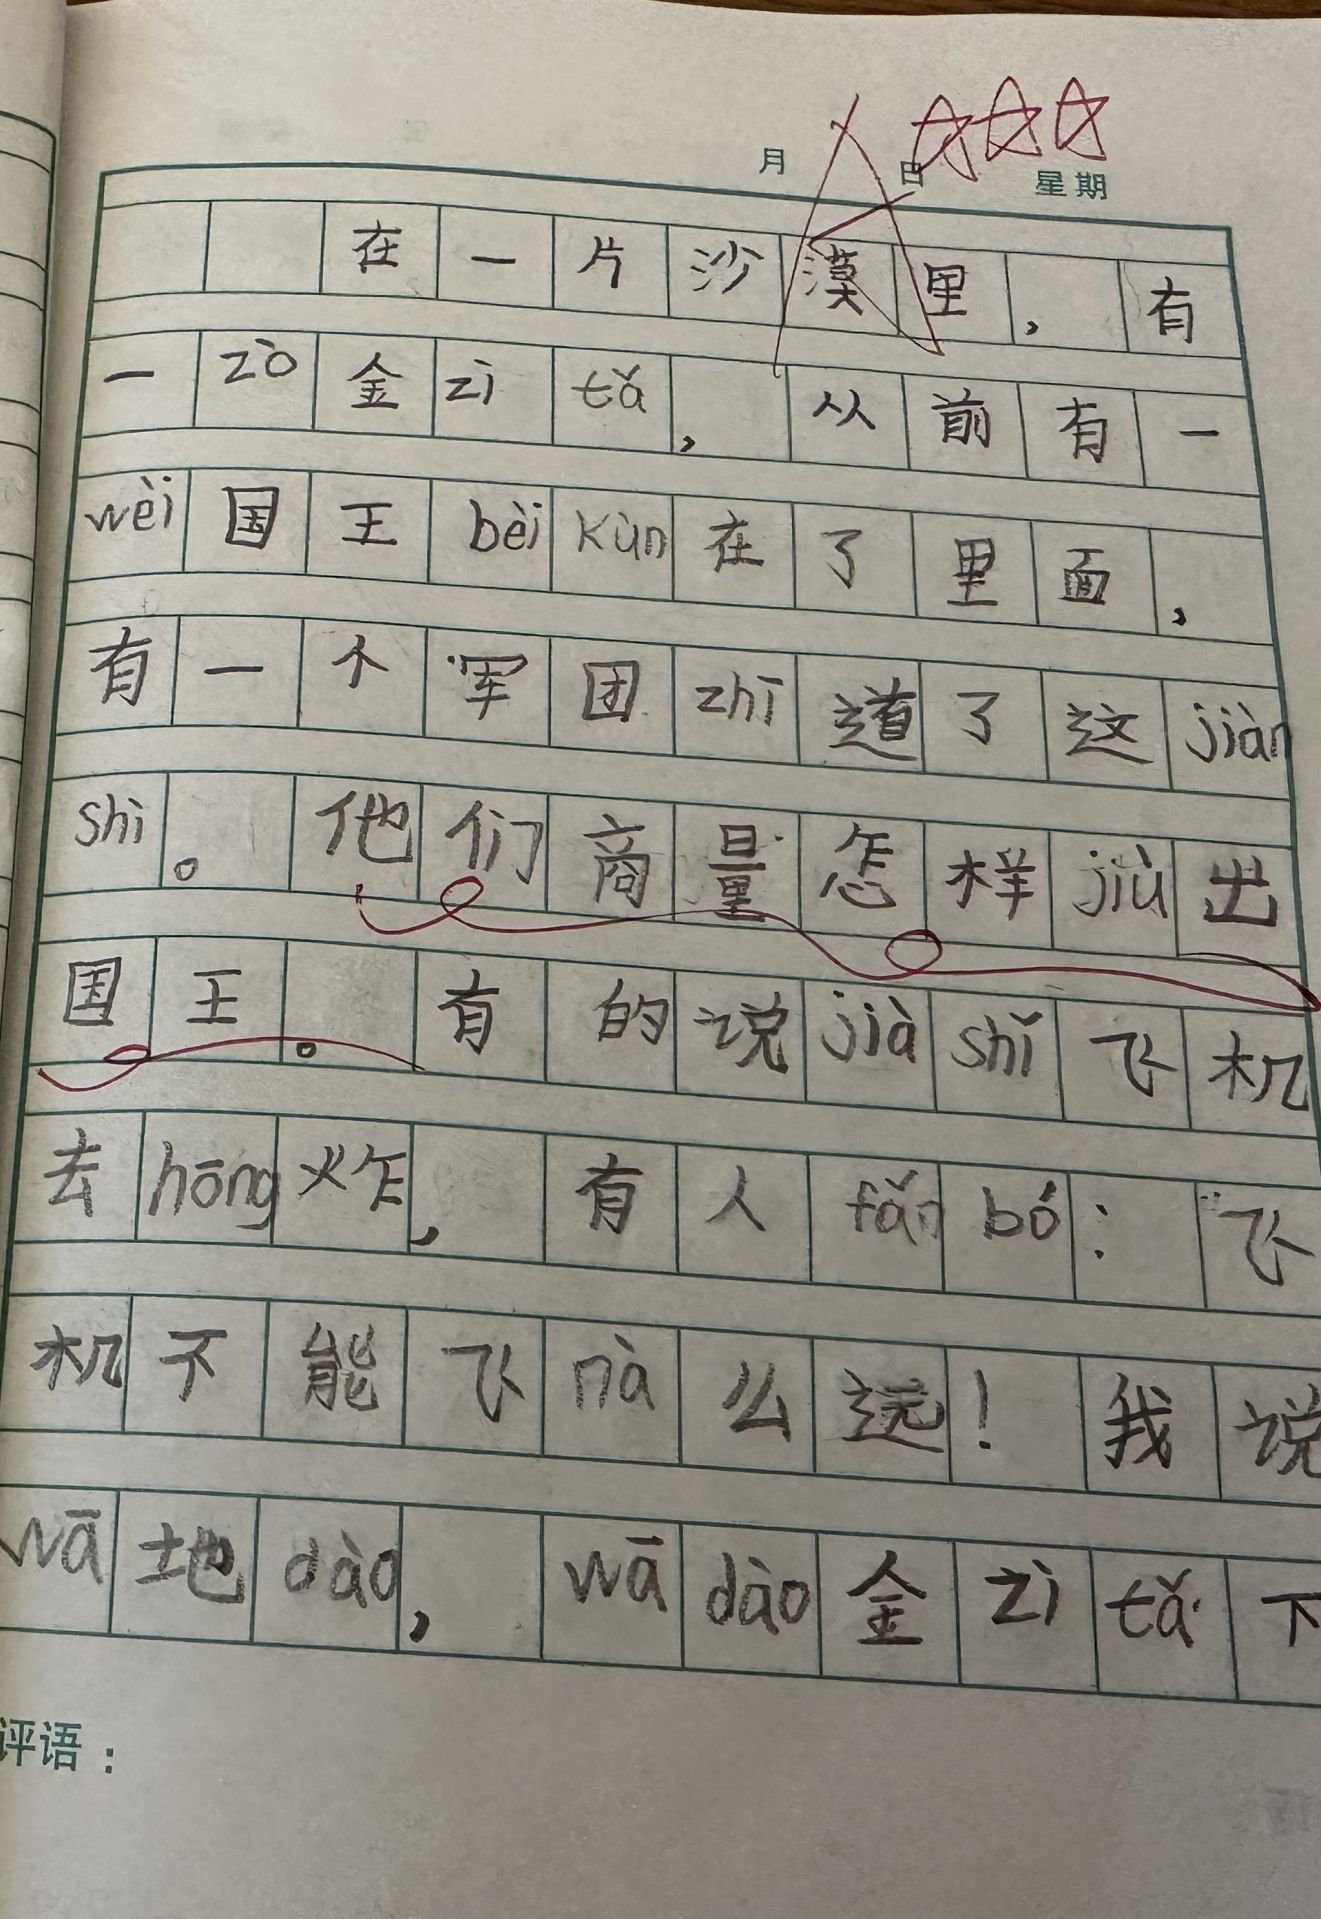 月 日 星期
在一片沙漠里，有
一zò金zì tǎ，从前有一
wèi国王bèi kùn在了里面，
有一个军团zhī道了这jiàn
shì。他们商量怎样jiù出
国王。有的说jià shǐ飞机
去hōng炸，有人fǎn bó：“飞
机不能飞nà么远！我说
wā地dào，wā dào金zì tǎ下
评语：